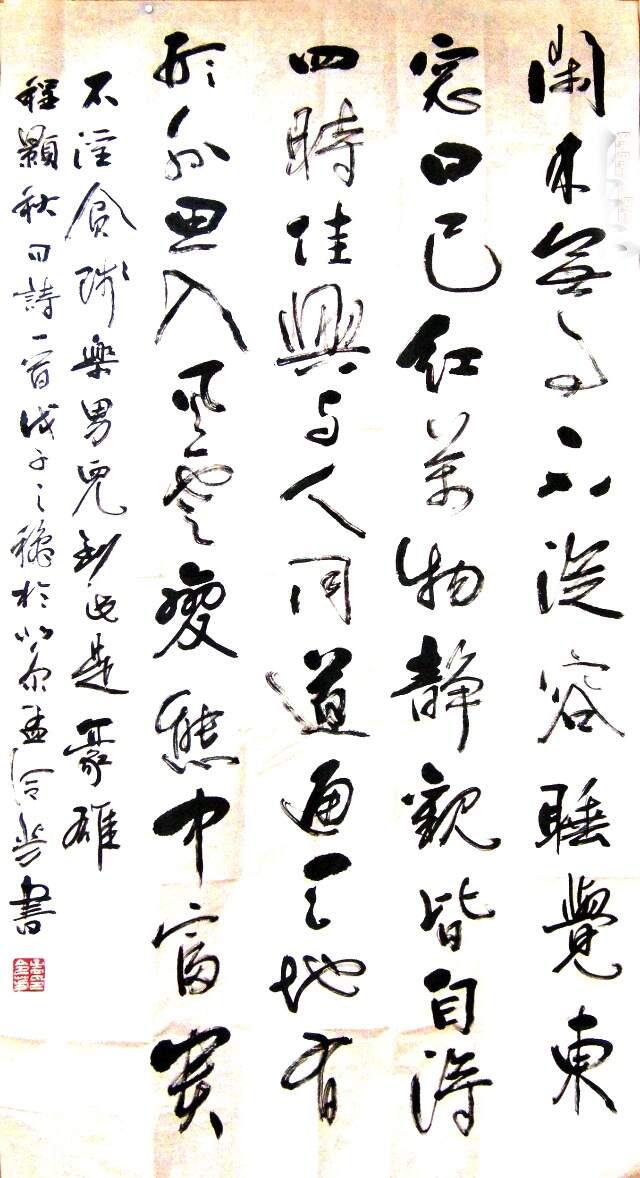 閑来無事不從容睡覺東
窓日已红萬物静觀皆自得
四時佳興与人同道通天地有
形外思入風雲變態中富貴
不淫貧賤樂男兒到此是豪雄
程顥秋日詩一首戊子之穐於北京孟書